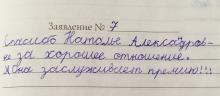 Заявление № 7
Спасибо Наталье Александров-
не за хорошее отношение.
Она заслуживает премию!!!